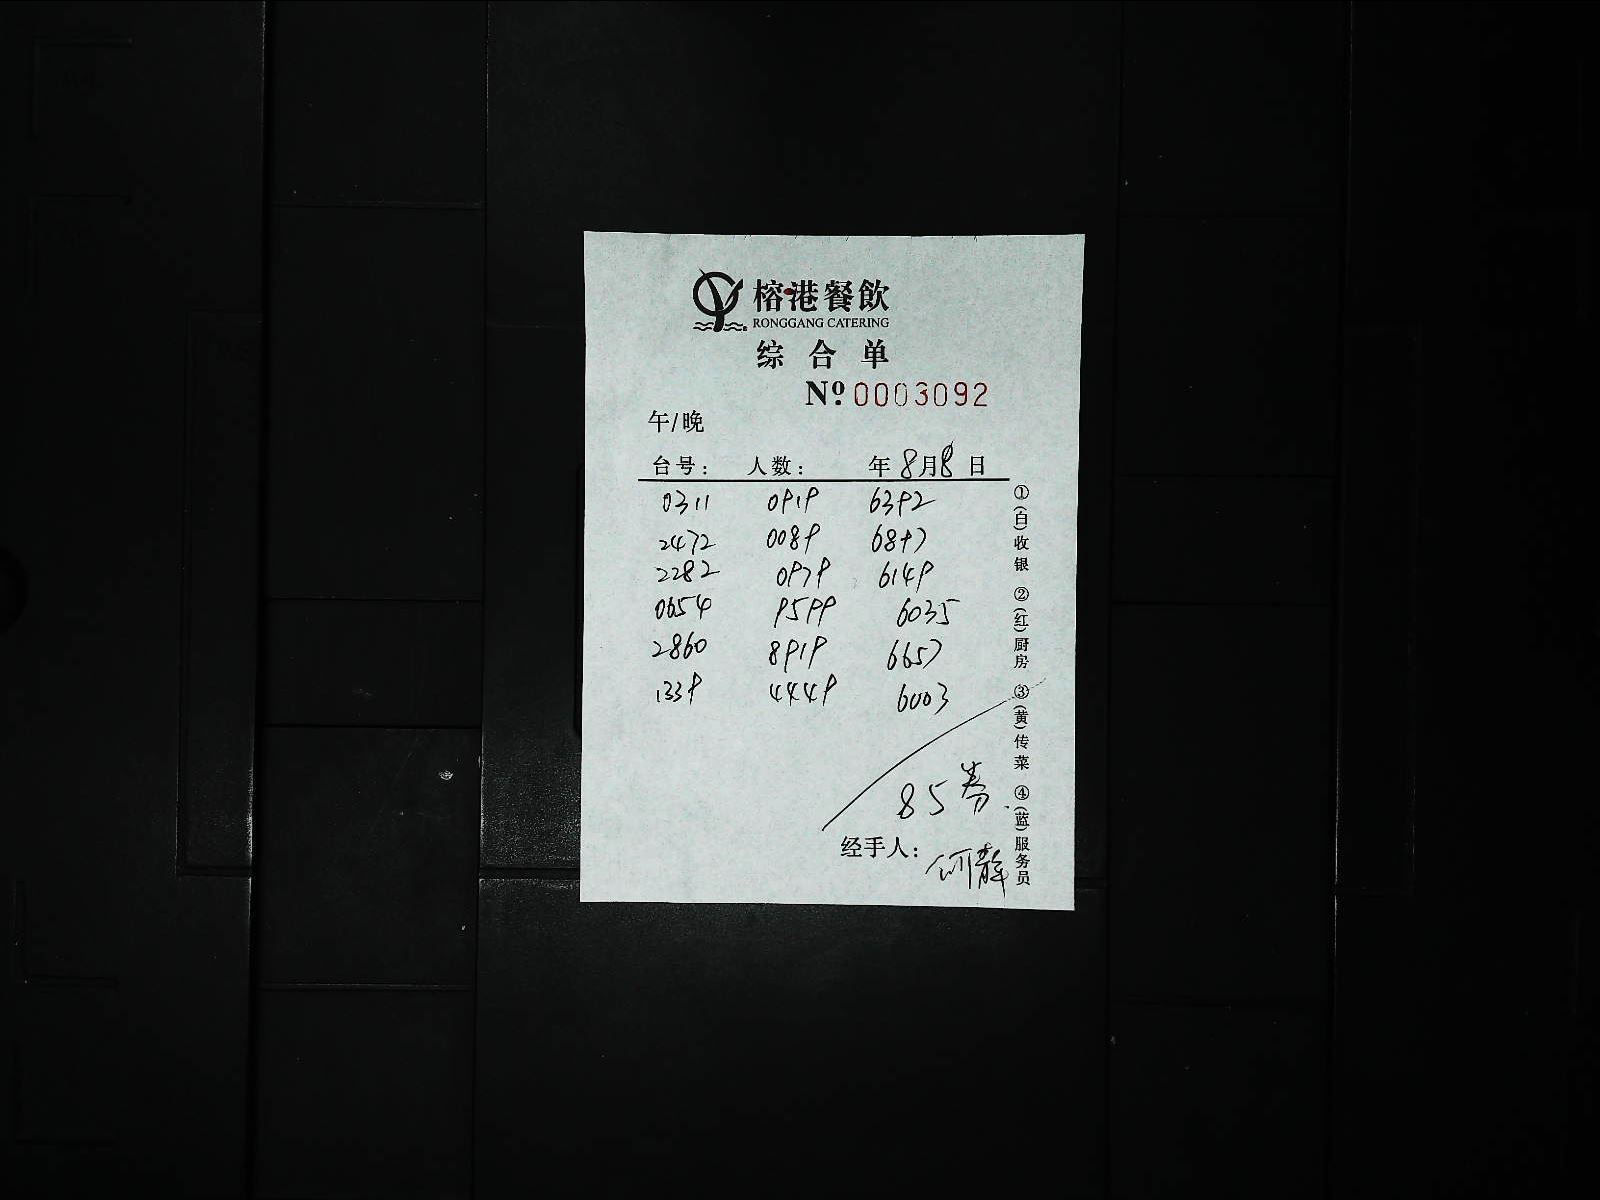 榕港餐飲
RONGGANG CATERING
综合单
№ 0003092
午/晚
台号： 人数： 年 8月8日
0311 0919 6392
2472 0089 6897
2282 0979 6149
0654 9599 6035
2860 8919 6657
1339 4449 6003
85券
经手人：何静
①(白)收银 ②(红)厨房 ③(黄)传菜 ④(蓝)服务员